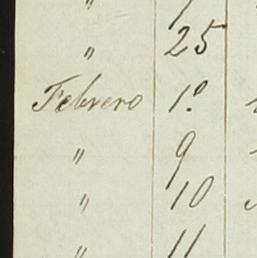 "
" 25
Febrero 1º
" 9
" 10
" 11